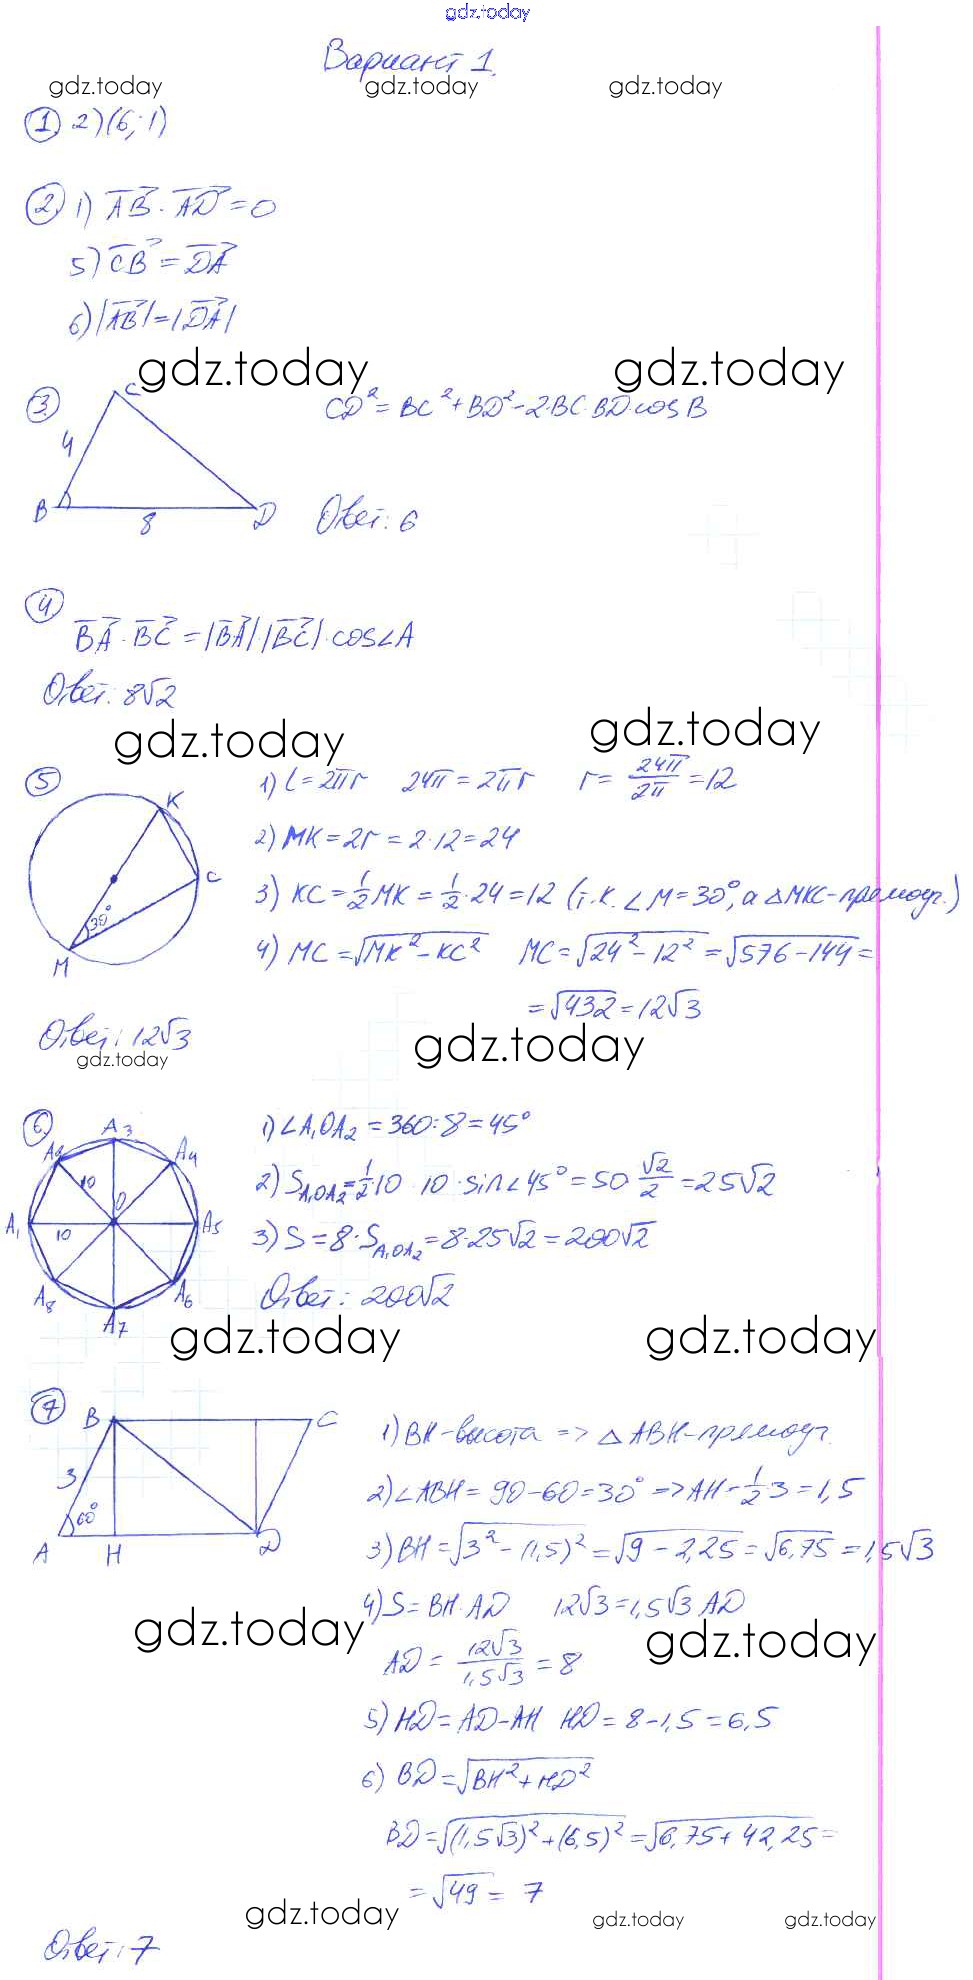 gdz.today
Вариант 1.
gdz.today gdz.today gdz.today
1 2) (6; 1)
2 1) AB · AD = 0
5) CB = DA
6) |AB| = |DA|
gdz.today gdz.today
3 C CD² = BC² + BD² - 2·BC·BD·cos B
4
B 8 D Ответ: 6
4
BA · BC = |BA|·|BC|·cos∠A
Ответ: 8√2
gdz.today gdz.today
5 K C M 30°
1) C = 2πr 24π = 2πr r = 24π/2π = 12
2) MK = 2r = 2·12 = 24
3) KC = 1/2 MK = 1/2 · 24 = 12 (т.к. ∠M = 30°, а △MKC - прямоуг.)
4) MC = √MK² - KC² MC = √24² - 12² = √576 - 144 =
= √432 = 12√3
Ответ: 12√3
gdz.today gdz.today
6 A3 A2 A4 A1 A5 A8 A6 A7 O 10 10
1) ∠A1OA2 = 360 : 8 = 45°
2) SA1OA2 = 1/2 10 · 10 · sin∠45° = 50 √2/2 = 25√2
3) S = 8·SA1OA2 = 8·25√2 = 200√2
Ответ: 200√2
gdz.today gdz.today
7 B C 3 60° A H D
1) BH - высота => △ABH - прямоуг.
2) ∠ABH = 90 - 60 = 30° => AH = 1/2·3 = 1,5
3) BH = √3² - (1,5)² = √9 - 2,25 = √6,75 = 1,5√3
4) S = BH·AD 12√3 = 1,5√3 AD
gdz.today gdz.today
AD = 12√3/1,5√3 = 8
5) HD = AD - AH HD = 8 - 1,5 = 6,5
6) BD = √BH² + HD²
BD = √(1,5√3)² + (6,5)² = √6,75 + 42,25 =
= √49 = 7
gdz.today gdz.today gdz.today
Ответ: 7